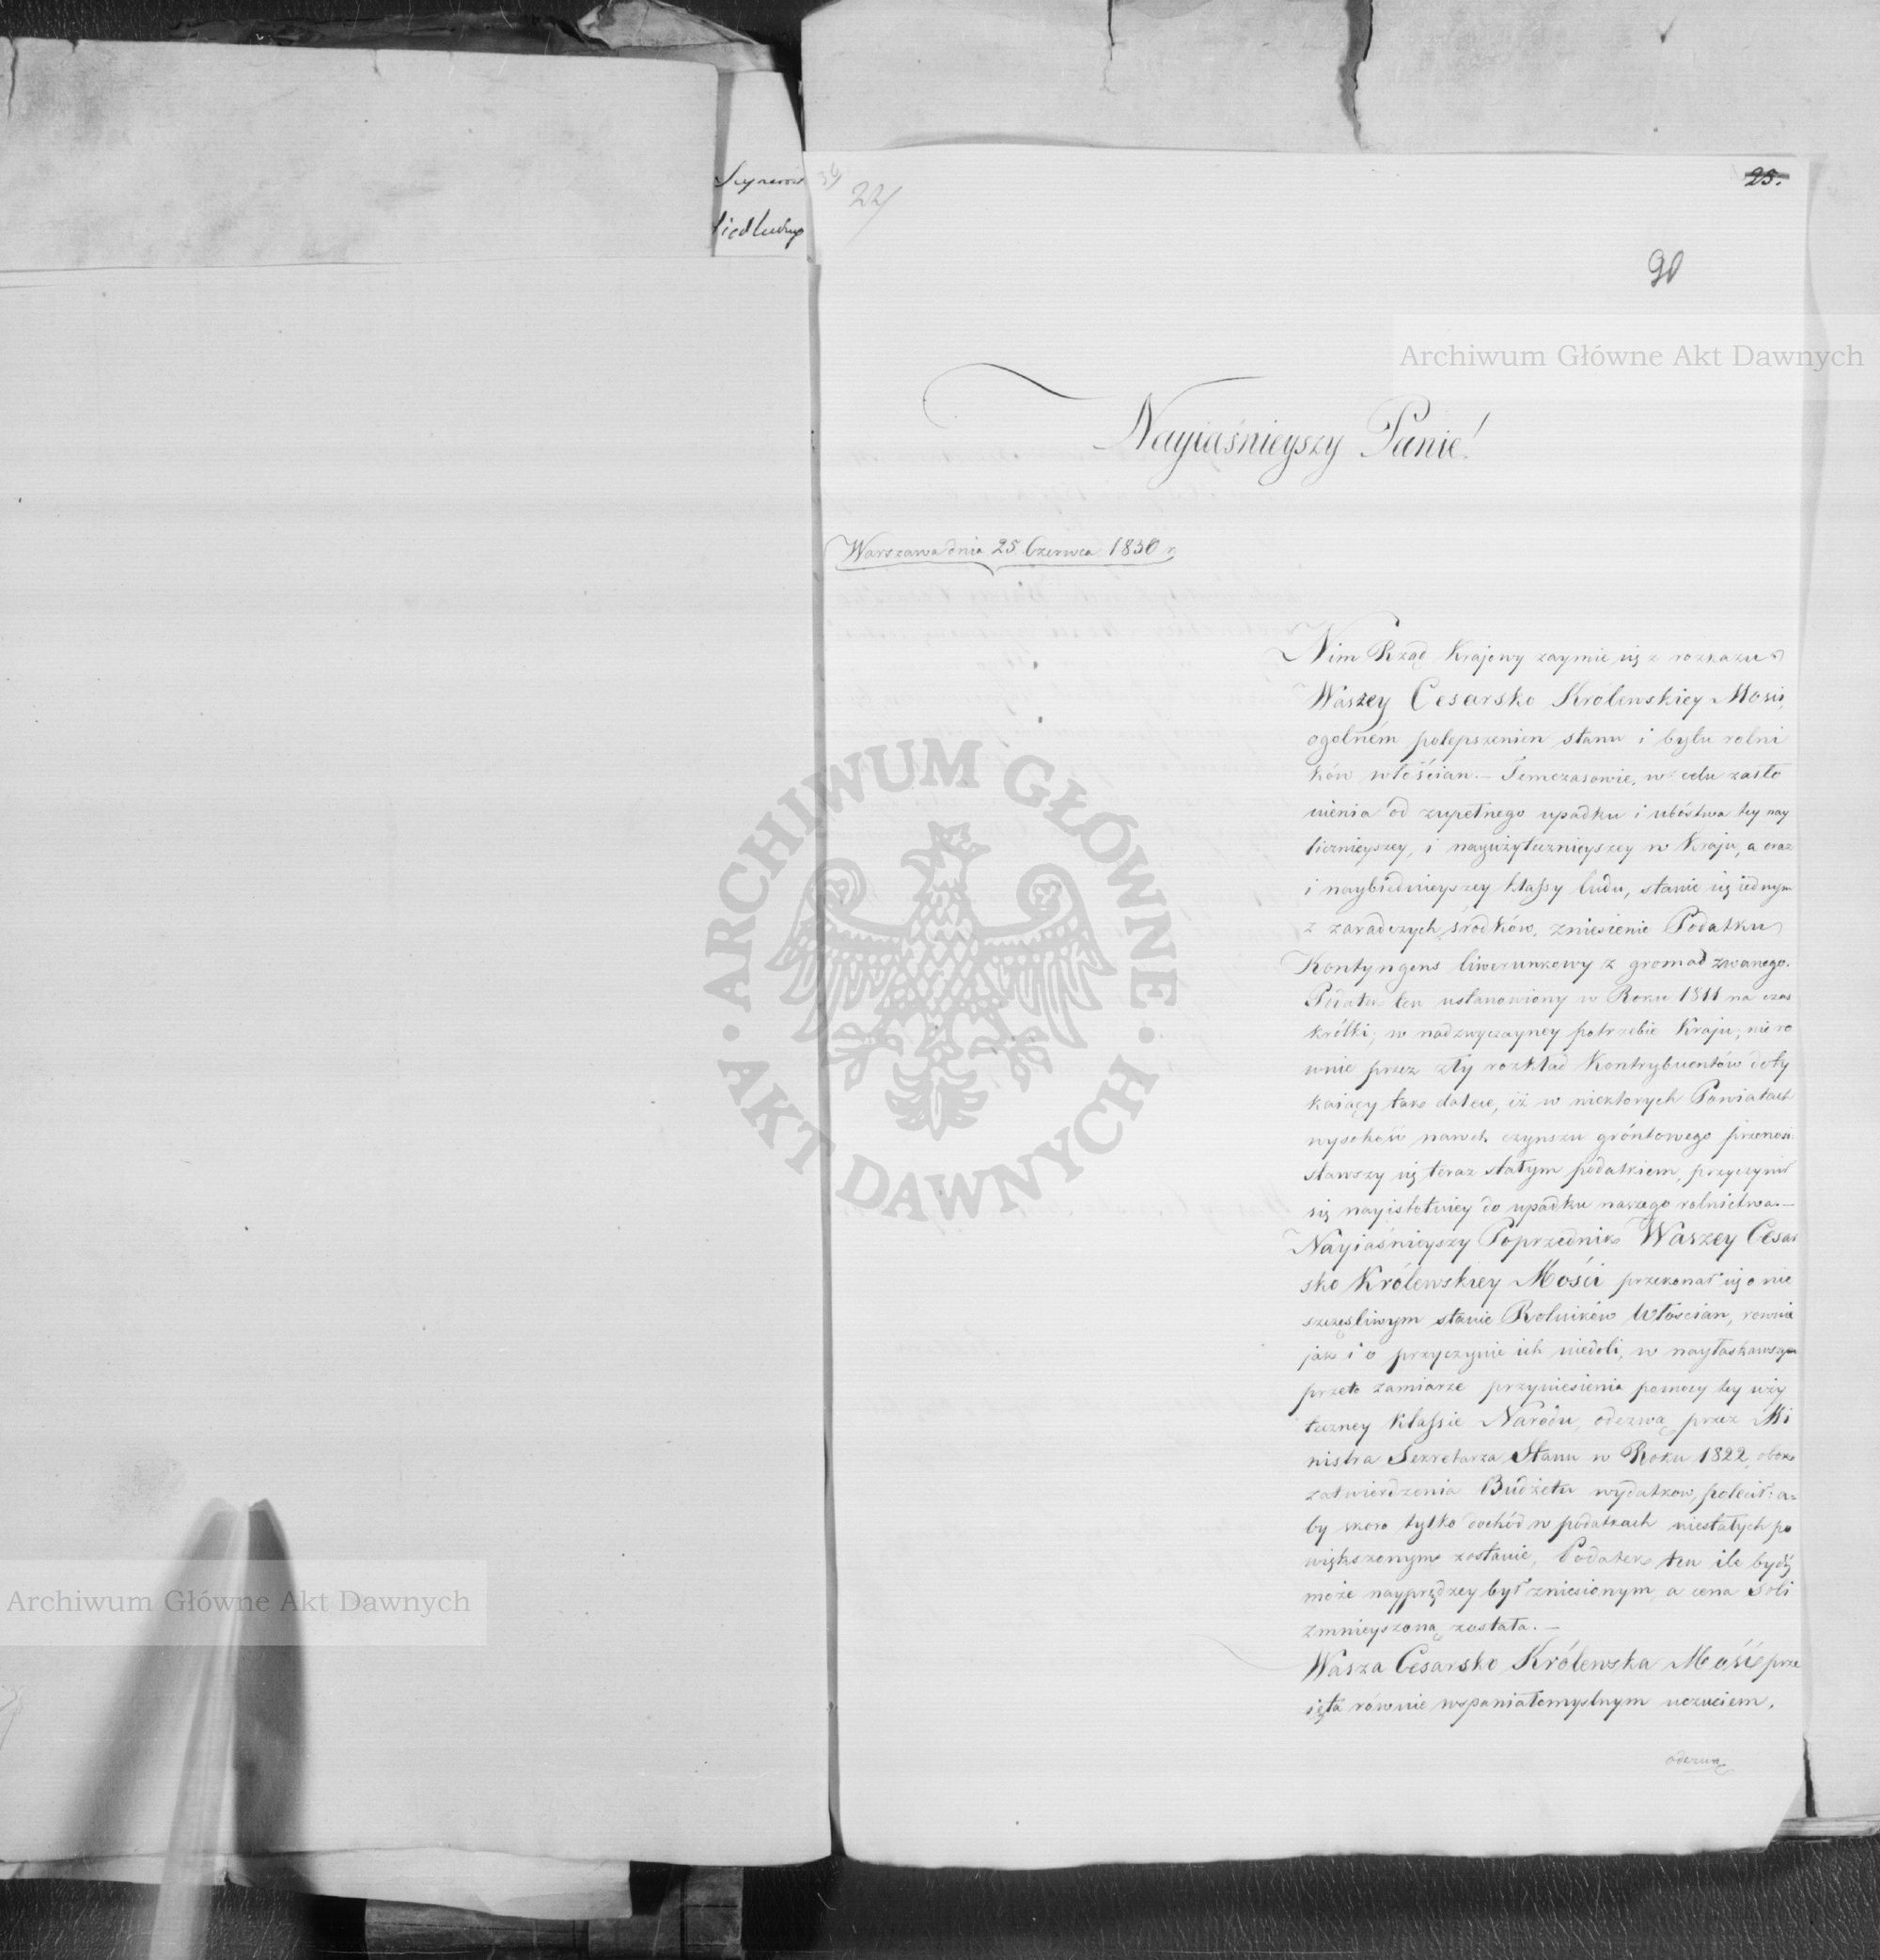 22/
25.
90
Archiwum Główne Akt Dawnych
Nayiaśnieyszy Panie!
Warszawa dnia 25 Czerwca 1830 r.
Nim Rząd Krajowy zaymie się z rozkazu
Waszey Cesarsko Królewskiey Mości,
ogolném polepszeniem stanu i bytu rolni
ków włościan. – Temczasowie, w celu zasło
nienia od zupełnego upadku i ubóstwa tey nay
licznieyszey, i nayużytecznieyszey w Kraju, a oraz
i naybiednieyszey klassy ludu, stanie się iednym
z zaradczych środków, zniesienie Podatku
Kontyngens liwerunkowy z gromad zwanego.
Podatek ten ustanowiony w Roku 1811 na czas
krótki; w nadzwyczayney potrzebie Kraju; nie ró
wnie przez zły rozkład Kontrybuentów doty
kaiący tak dalece, iż w niektorych Powiatach
wysokość nawet czynszu gróntowego przenosi
stawszy się teraz stałym podatkiem, przyczynił
się nayistotniey do upadku naszego rolnictwa. –
Nayiaśnieyszy Poprzednik Waszey Cesar
sko Królewskiey Mości przekonał się o nie
szczęsliwym stanie Rolników Włoscian, rownie
jak i o przyczynie ich niedoli, w nayłaskawszym
przeto zamiarze przyniesienia pomocy tey uży
teczney klassie Narodu, odezwą przez Mi
nistra Sekretarza Stanu w Roku 1822, obok
zatwierdzenia Budżetu wydatkow, polecił: a=
by skoro tylko dochód w podatkach niestałych po
większonym zostanie, Podatek ten ile bydź
może nayprędzey był zniesionym, a cena Soli
zmnieyszoną została. –
Wasza Cesarsko Królewska Mość prze
ięta równie wspaniałomyslnym uczuciem,
odezwą
ARCHIWUM GŁÓWNE
AKT DAWNYCH
Archiwum Główne Akt Dawnych